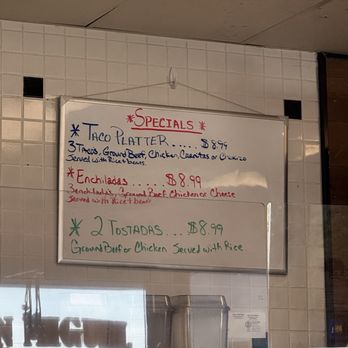 *SPECIALS*
*TACO PLATTER..... $8.99
3 Tacos, Ground Beef, Chicken, Carnitas or Chorizo
Served with Rice & beans
*Enchiladas...... $8.99
3 enchiladas, Ground Beef Chicken or Cheese
Served with Rice & beans
* 2 TOSTADAS... $8.99
Ground Beef or Chicken Served with Rice
N MIGUEL